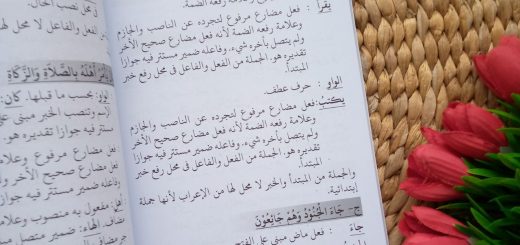 يقرأ : فعل مضارع مرفوع لتجرده عن الناصب والجازم
وعلامة رفعه الضمة لأنه فعل مضارع صحيح الآخر
ولم يتصل بآخره شيء. وفاعله ضمير مستتر فيه جوازا
تقديره هو. الجملة من الفعل والفاعل في محل رفع خبر
المبتدأ.
الواو : حرف عطف.
يكتب : فعل مضارع مرفوع لتجرده عن الناصب والجازم
وعلامة رفعه الضمة لأنه فعل مضارع صحيح الآخر
ولم يتصل بآخره شيء. وفاعله ضمير مستتر فيه جوازا
تقديره هو. الجملة من الفعل والفاعل في محل رفع خبر
المبتدأ.
والجملة من المبتدأ والخبر لا محل لها من الإعراب لأنها جملة
إبتدائية.
ج- جَاءَ الْجُنُودُ وَهُمْ جَائِعُونَ
جاءَ : فعل ماض مبني على الفتح
في محل نصب الحال.
الفعل والفاعل لا محل لها
أهله بِالصَّلَاةِ وَالزَّكَاةِ
الواو: بحسب ما قبلها. كان:
الاسم وتنصب الخبر مبني على
مستتر فيه جوازا تقديره هو.
فعل مضارع مرفوع وعلامة
مضارع صحيح الآخر و
ضمير مستتر فيه جوازا
والفاعل في محل نصب
أهل: مفعول به منصوب وعلامة
مضاف. الهاء: ضمير متصل